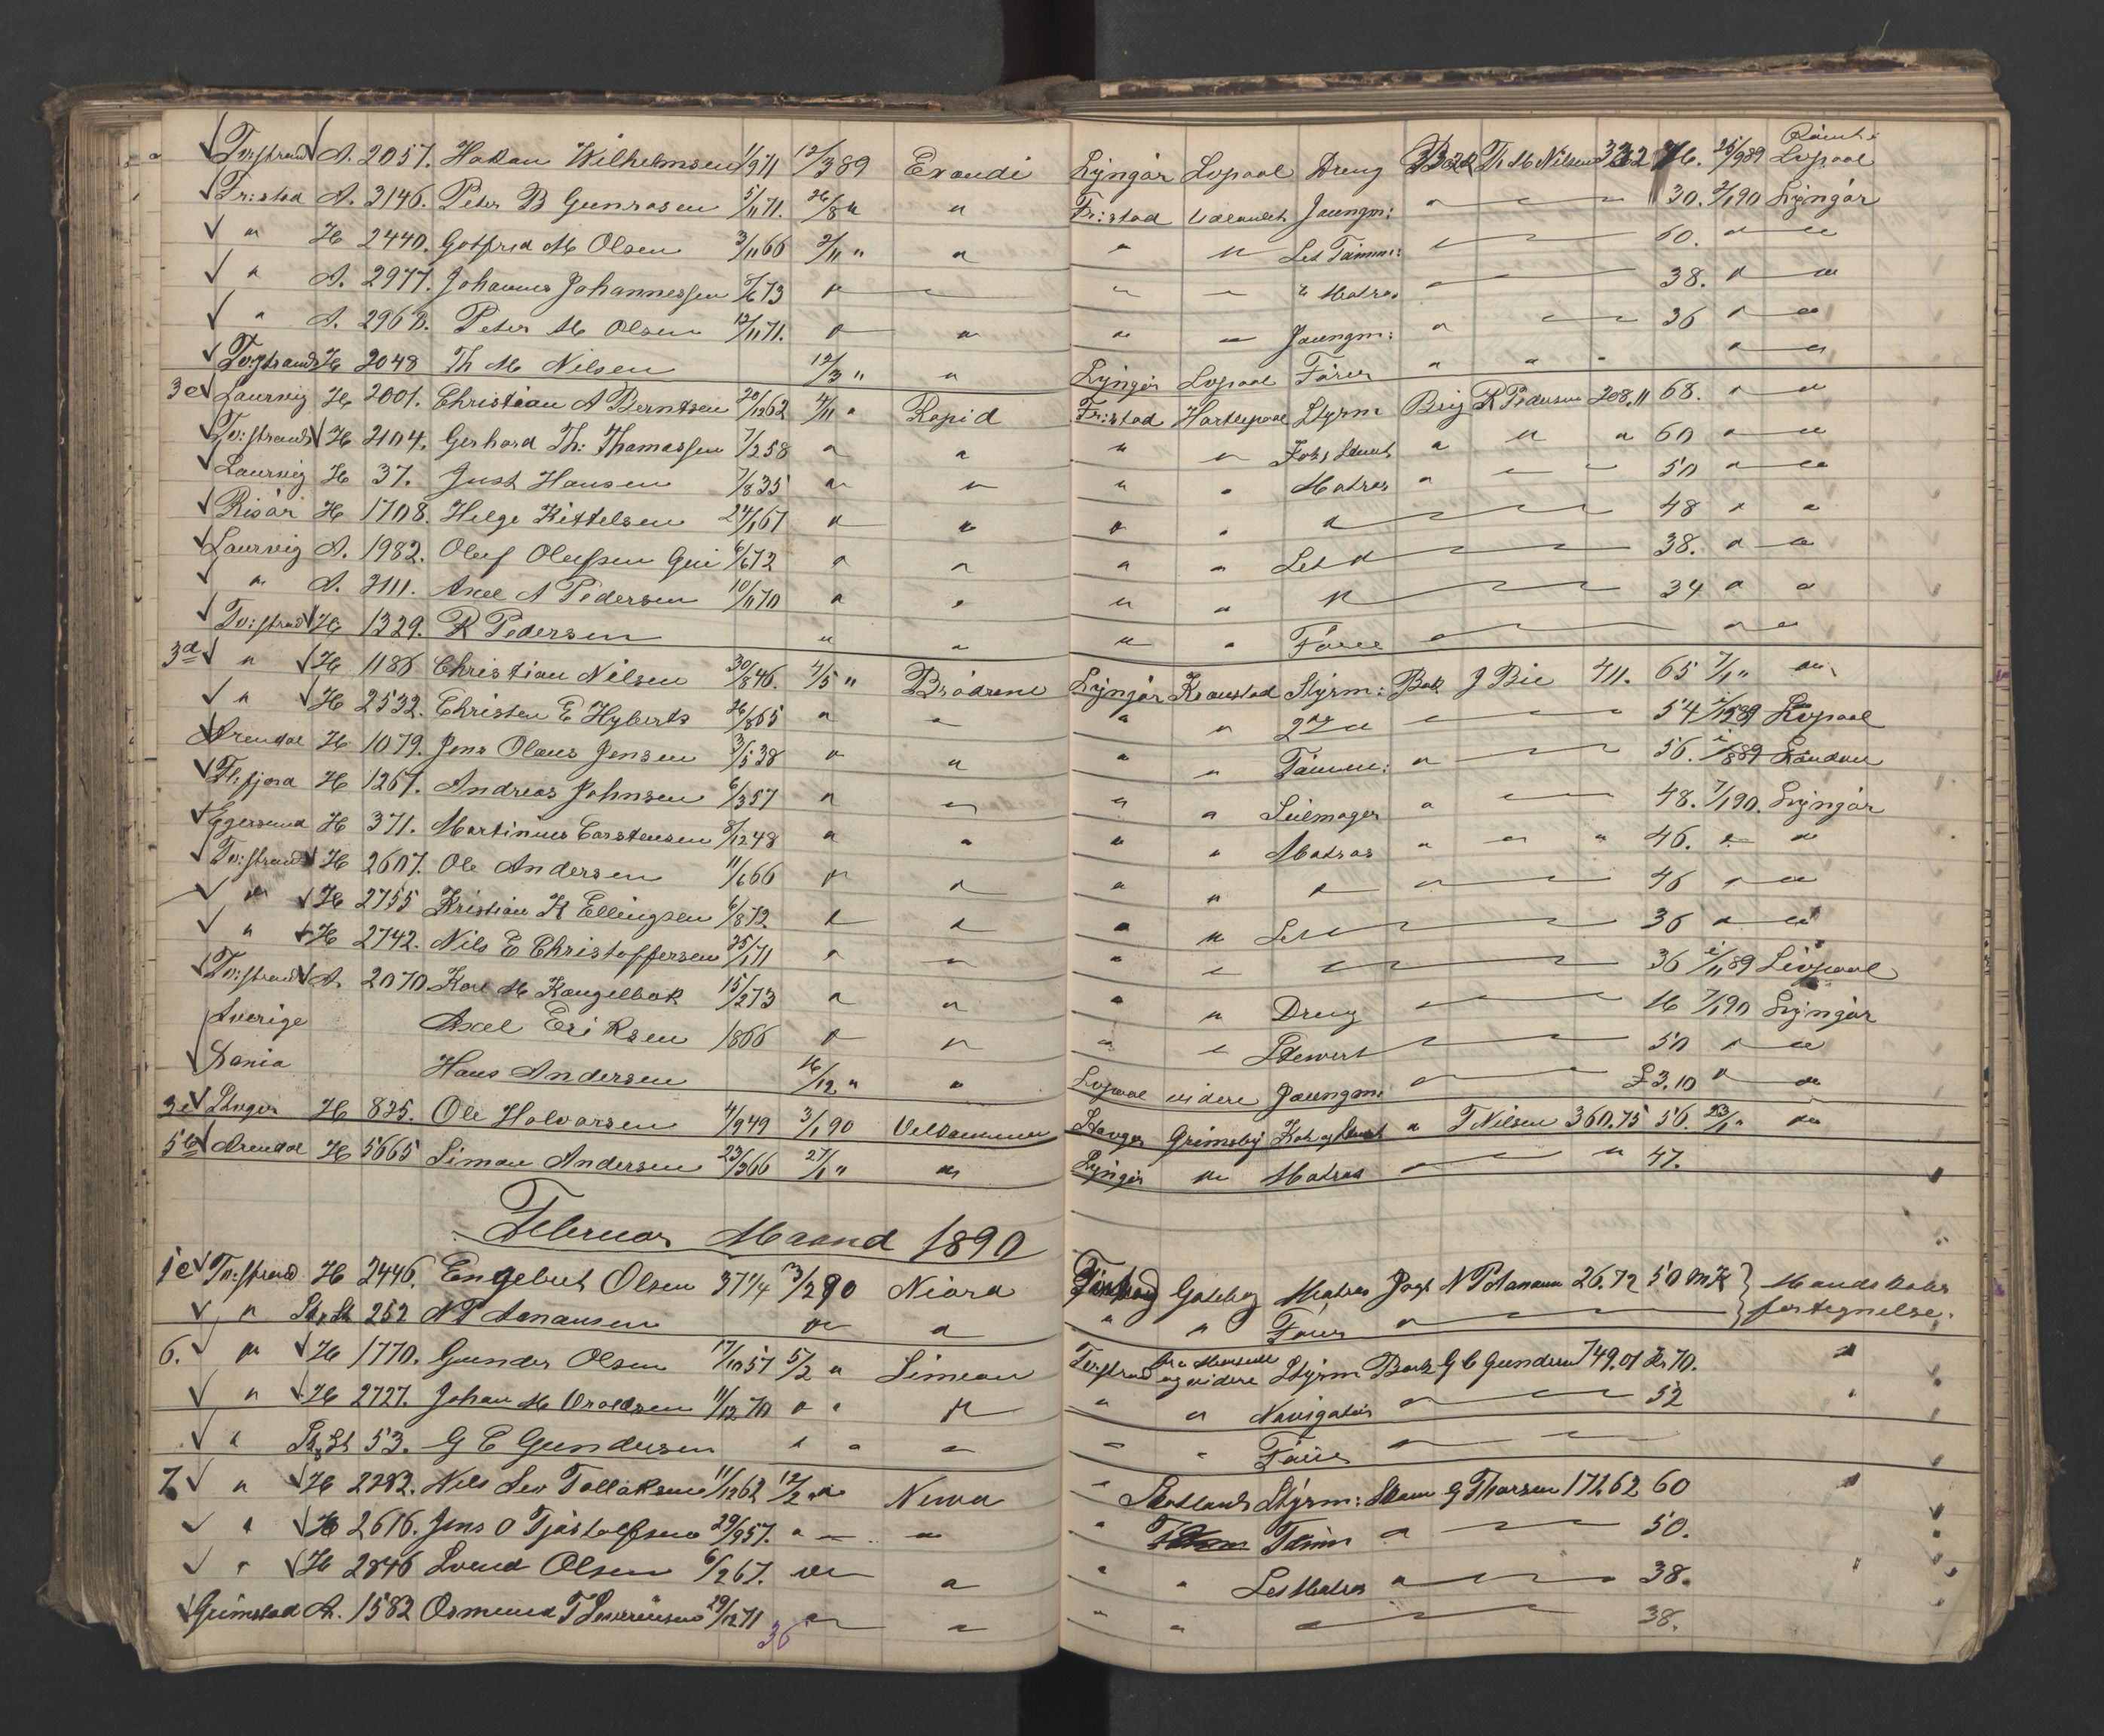 Tv:strand A. 2057. Hakan Wilhelmsen 1/9 71 12/3 89 Exaudi Lyngör Lvpool Dreng Bark Th M Nilsen 332 16. 25/9 89 Lvpool
Fr:stad A. 3146. Peter B Gunrosen 5/11 71. 26/8 " " Fr:stad Jaungm: " 30. 2/1 90 Lyngör
" H 2440. Gotfred M Olsen 3/11 66 2/11 " " " " Let Tömm: 60. " "
" A. 2977. Johannes Johannessen 5/6 73 " " " " Matros 38. " "
" A. 2968. Peter M Olsen 12/11 71. " " " " Jaungm: " 36 " "
Tv:strand H 2048 Th M Nilsen 12/3 " " Lyngör Lvpool Förer " " " " "
3c Laurvig H 2001. Christian A Berntsen 20/12 62 4/11 " Rapid Fr:stad Hartlepool Styrm Brig R Pedersen 208.11 68. " "
Tv:strand H 2104. Gerhard Th: Thomassen 7/2 58 " " " " " " " 60 " "
Laurvig H 37. Just Hansen 7/8 35 " " " " Matros " 50 " "
Risör H 1708. Helge Kittelsen 24/1 67 " " " " " 48 " "
Laurvig A. 1982. Oluf Olufsen Gui 6/6 72 " " " " Let " 38. " "
" A. 2111. Axel A Pedersen 10/11 70 " " " " " 34 " "
Tv:strand H 1329. R Pedersen " " " " Förer " "
3d " H 1186 Christian Nilsen 30/8 46. 4/5 " Brödrene Lyngör Styrm: Bark J Bie 411. 65 7/1 " "
" H 2532. Christen E Hyberts 26/8 65 " " " " 2den 54 Lvpool
Arendal H 1079. Jens Olaus Jensen 3/5 38 " " " " Tömm: " 56. London
Fl:fjord H 1267. Andreas Johnsen 6/3 57 " " " " Seilmager " 48. 7/1 90. Lyngör
Egersund H 371. Martinius Carstensen 8/12 48 " " " " Matros " " " 46. " "
Tv:strand H 2607. Ole Andersen 11/6 66 " " " " " " 46 " "
" H 2755 Kristian K Ellingsen 6/8 72 " " " " Let 36 " "
" H 2742. Nils E Christoffersen 25/1 71 " " " " 36 89 Livpool
Tv:strand A. 2070. Karl M Kangelbak 15/2 73 " " " " Dreng 16 7/1 90 Lyngör
Sverige Axel Eriksen 1866 " " " " Stewert 50 " "
Dania Hans Andersen 16/12 " " Lvpool videre Jaungm: £3.10 " "
3e H 825. Ole Halvorsen 4/9 49 3/1 90 Velkommen Grimsby " T Nilsen 360.75 56. 23/1 " "
5te Arendal H 5665 Simon Andersen 23/3 66 27/1 " " Lyngör " Matros " 47.
Februar Maand 1890
1c Tv:strand H 2446. Engebret Olsen 37 1/4 13/2 90 Niord Matros Jagt 26.72 50 Mandskabs
" 252 " " " " Förer " fortegnelse.
6. " H 1770. Gunder Olsen 17/10 57 5/2 " Simeon Tv:strand og videre Styrm Bark G C Gundersen 749.01 Kr 70. "
" H 2727. Johan M 11/12 70 " " " " " Navigatör " 52 "
" 53. G C Gundersen " " " " " Förer "
7. " H 2282. Nils Sev Tollaksen 11/12 62 12/2 " " " Skotland Styrm: G Tharsen 171.62 60 "
" H 2616. Jens O Tjöstolfsen 29/9 57. " " " Tömm " 50.
" H 2846 Svend Olsen 6/2 67. " " " " Let Matros " 38. "
Grimstad A. 1582 Osmund T 29/12 71 " " " " 38.
36